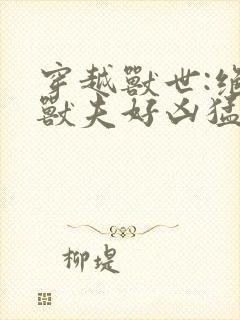 穿越獸世:絕
獸夫好凶猛
柳堤